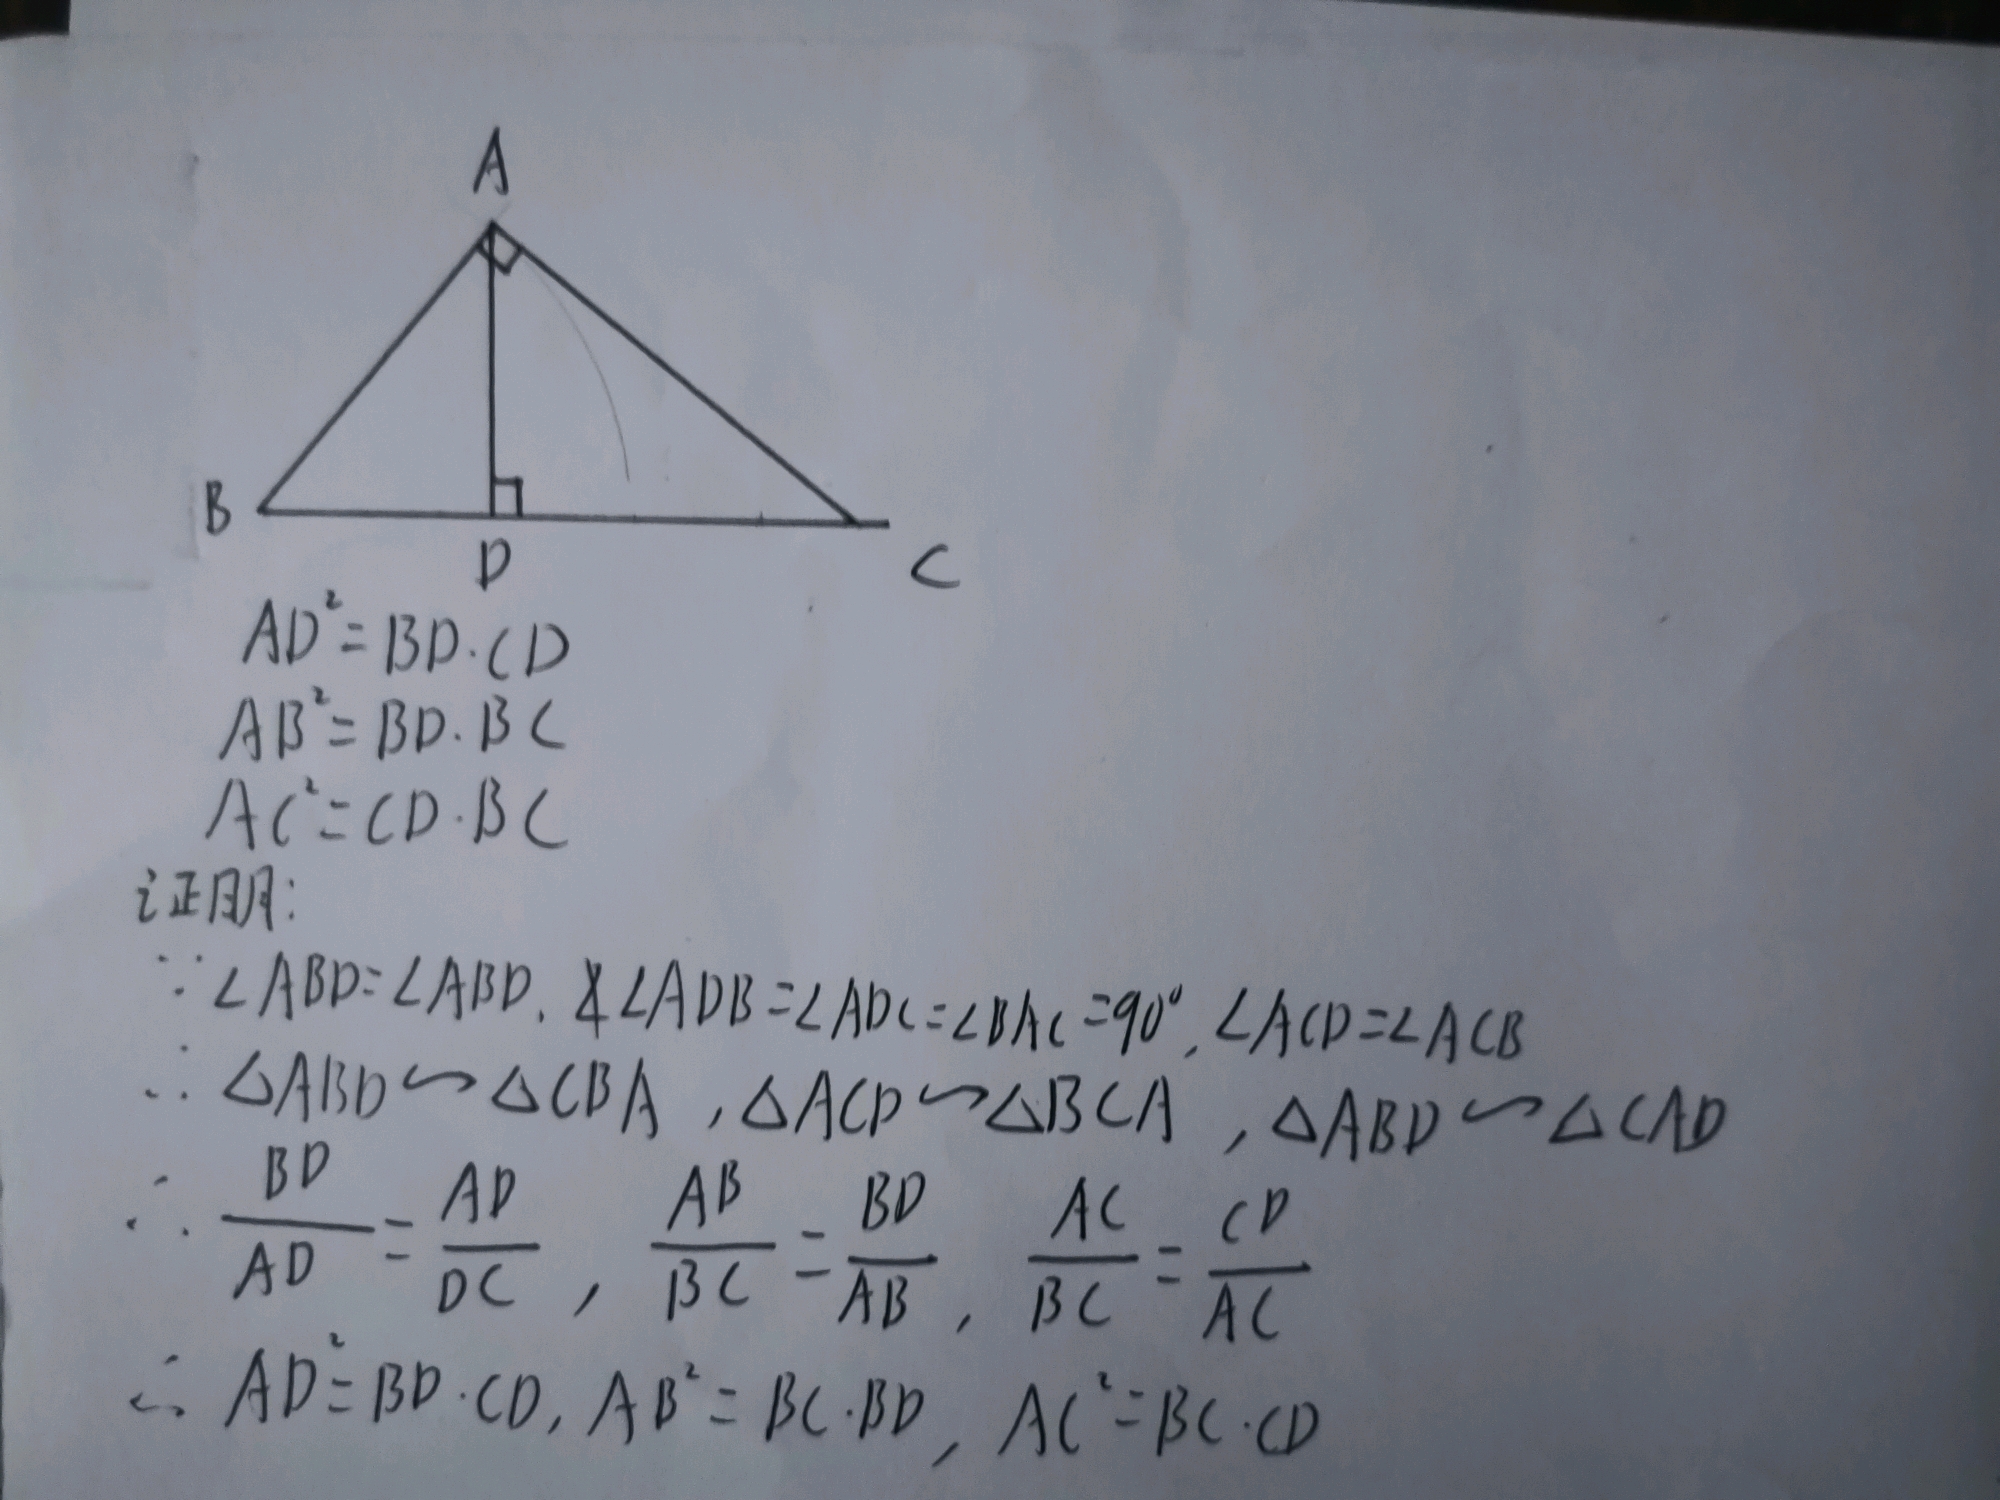 A
B
D
C
AD²=BD·CD
AB²=BD·BC
AC²=CD·BC
证明:
∵∠ABD=∠ABD,∠ADB=∠ADC=∠BAC=90°,∠ACD=∠ACB
∴△ABD∽△CBA,△ACD∽△BCA,△ABD∽△CAD
∴BD/AD=AD/DC,AB/BC=BD/AB,AC/BC=CD/AC
∴AD²=BD·CD,AB²=BC·BD,AC²=BC·CD